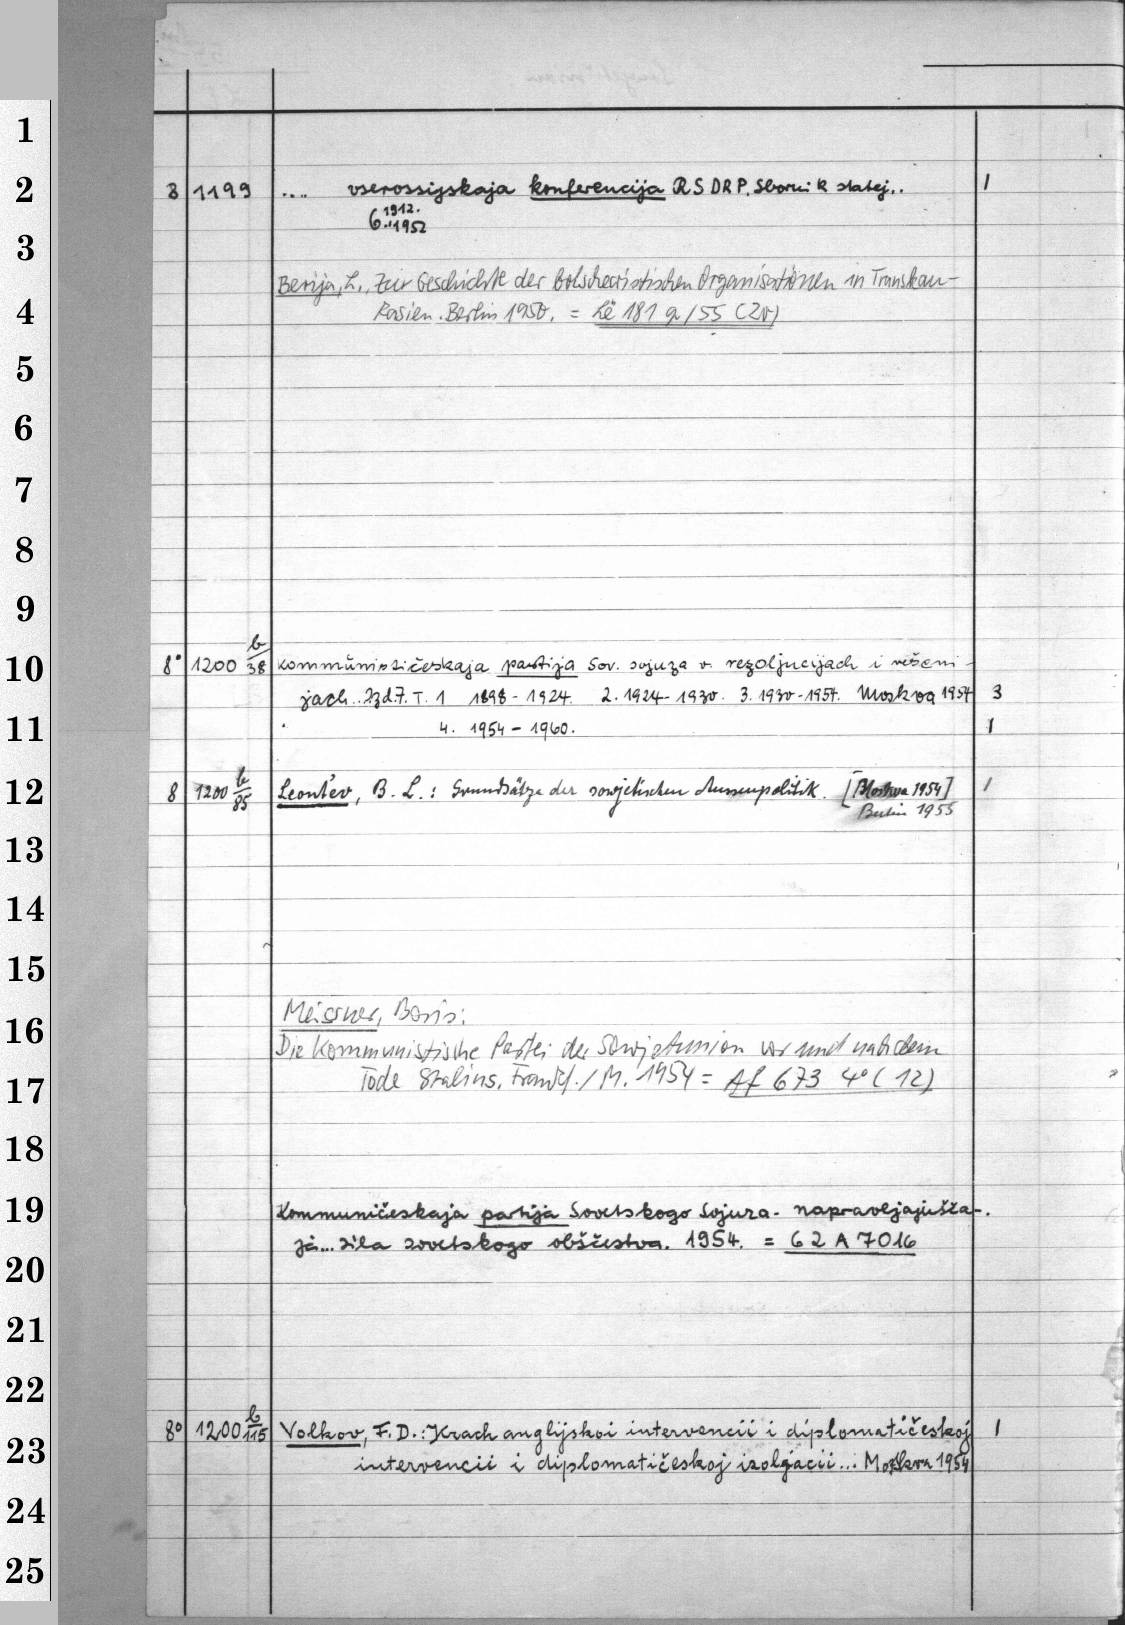 1
2
3
4
5
6
7
8
9
10
11
12
13
14
15
16
17
18
19
20
21
22
23
24
25
8 1199 .... vserossijskaja konferencija RSDRP. Sbornik statej.. 1
6. 1912. ..1952
Berija, L., Zur Geschichte der bolschewistischen Organisationen in Transkau-
kasien. Berlin 1950. = 181 9/55 (20)
8° 1200 b/38 Kommunističeskaja partija Sov. sojuza v. rezoljucijach i rešeni-
jach.. Izd.7. T. 1 1898-1924. 2. 1924-1930. 3. 1930-1954. Moskva 1954 3
4. 1954-1960. 1
8 1200 b/85 Leont'ev, B. L.: Grundsätze der sowjetischen Aussenpolitik. [Moskva 1954] 1
Berlin 1955
Meissner, Boris:
Die Kommunistische Partei der Sowjetunion vor und nach dem
Tode Stalins. Frankf./M. 1954 = Af 673 4° (12)
Kommuničeskaja partija Sovetskogo Sojuza- napravljajušča-.
ja... sila sovetskogo obščestva. 1954. = 62 A 7016
8° 1200 b/115 Volkov, F.D.: Krach anglijskoi intervencii i diplomatičeskoj 1
intervencii i diplomatičeskoj izoljacii... Moskva 1954